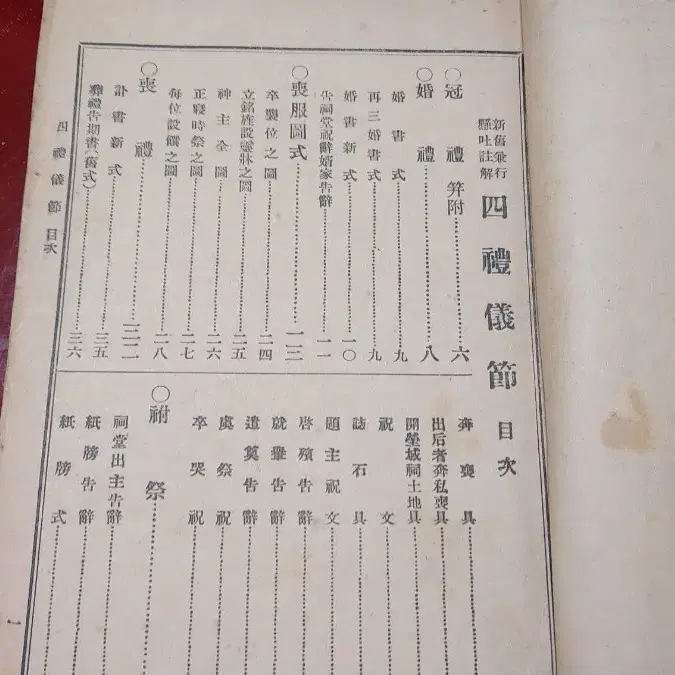 新舊兼行
懸吐註解
四禮儀節 目次
○冠禮 笄附 六
○婚禮 八
婚書式 九
再三婚書式 九
婚書新式 一〇
告祠堂祝辭婿家告辭 一一
○喪服圖式 一三
卒襲位之圖 二四
立銘旌設靈牀之圖 二五
神主全圖 二六
正寢時祭之圖 二七
每位設饌之圖 二八
○喪禮 三二
訃書新式 三五
葬禮告期書(舊式) 三六
奔喪具
出后者奔私喪具
開塋域祠土地具
祝文
誌石具
題主祝文
啓殯告辭
就轝告辭
遣奠告辭
虞祭祝
卒哭祝
○祔祭
祠堂出主告辭
紙牓告辭
紙牓式
四禮儀節 目次
一